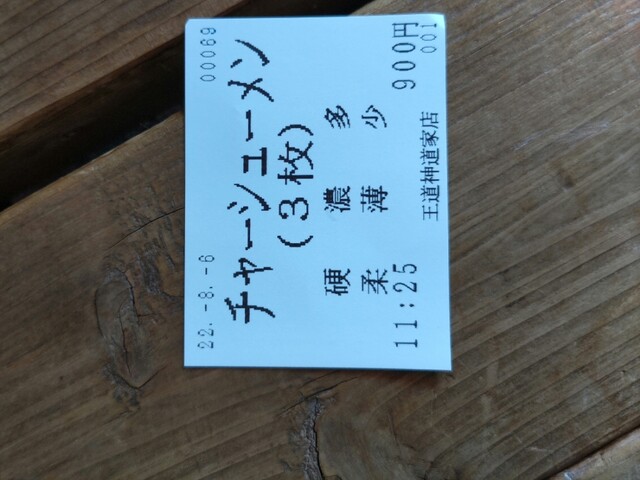 22.-8.-6 00069
チャーシューメン
(3枚)
硬 濃 多
柔 薄 少
11:25 900円
王道神道家店 001